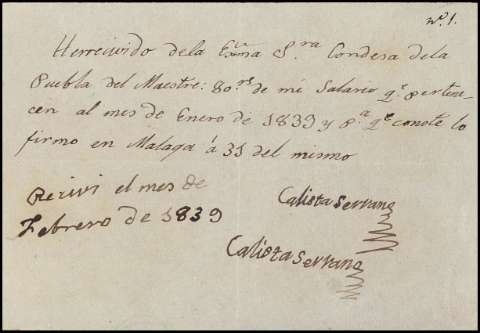 Nº 1.
Herreivido dela Exma Sra Condesa dela
Puebla del Maestre: 80 rs de mi Salario qe pertene-
cen al mes de Enero de 1839 y pa qe conste lo
firmo en Malaga á 31 del mismo
Rerivi el mes de
Febrero de 1839
Calista Serrano
Calista Serrano